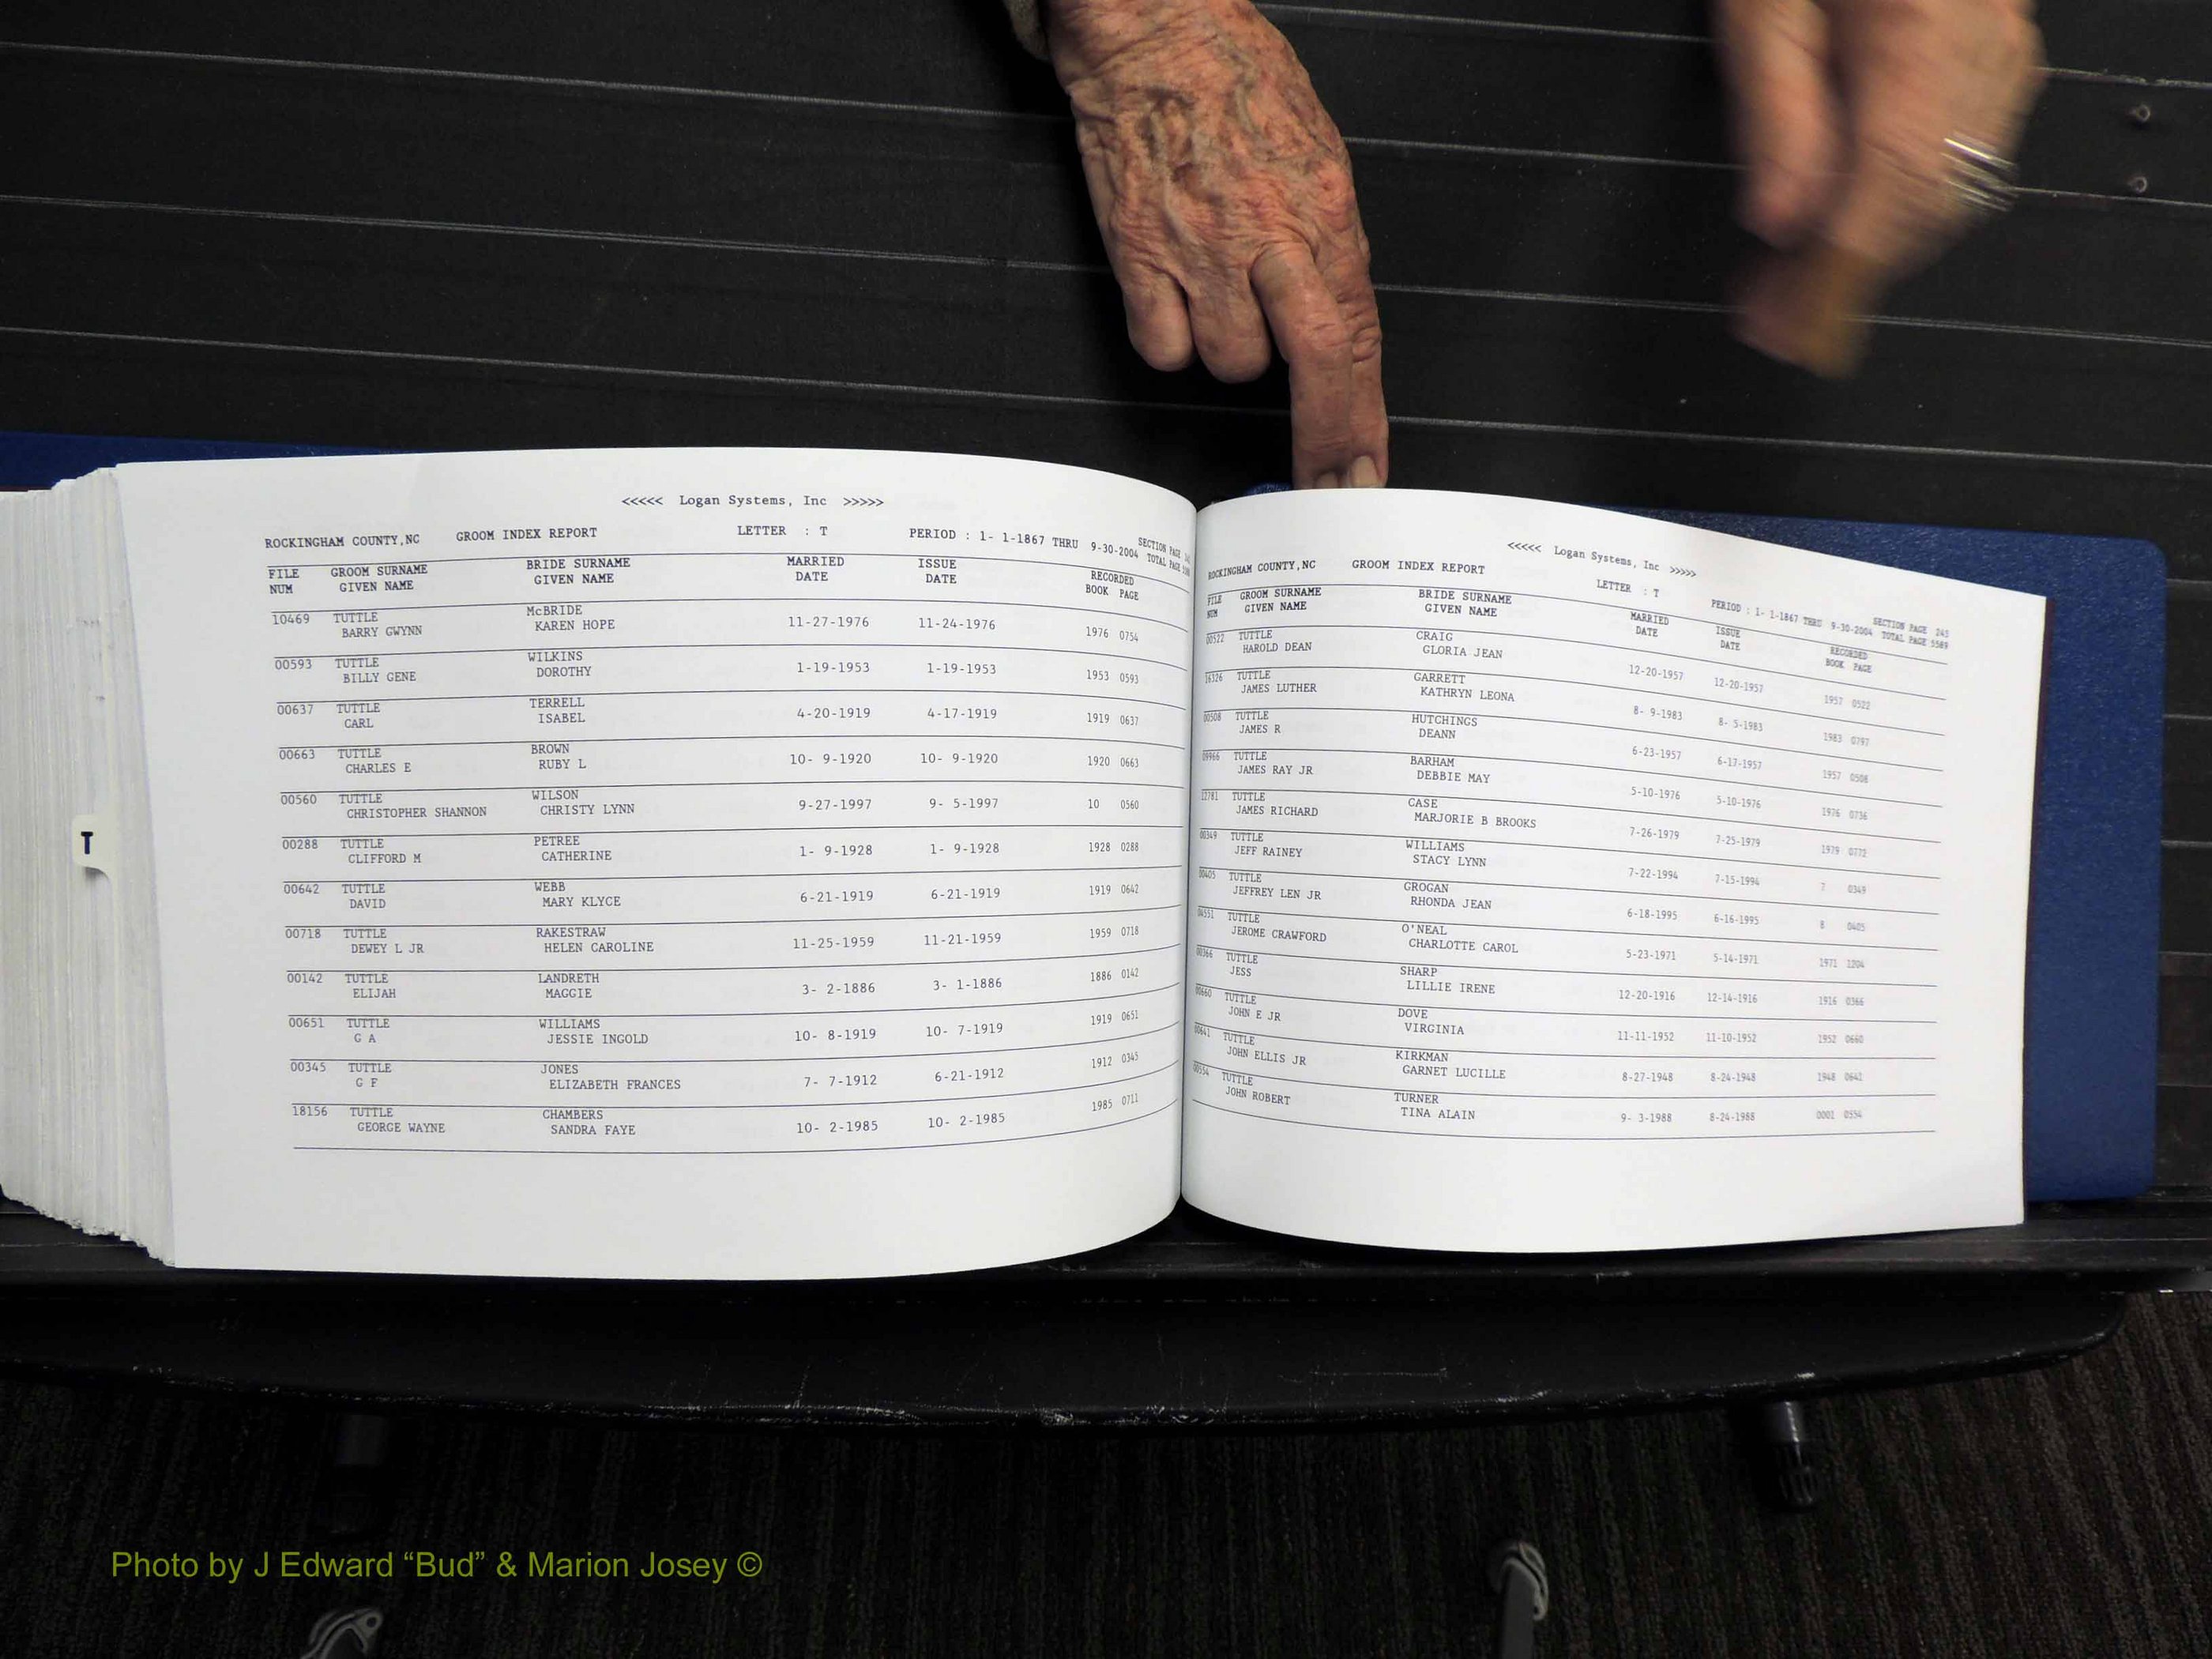 <<<<< Logan Systems, Inc >>>>>
ROCKINGHAM COUNTY,NC GROOM INDEX REPORT LETTER : T PERIOD : 1- 1-1867 THRU 9-30-2004 SECTION PAGE
TOTAL PAGE
FILE GROOM SURNAME BRIDE SURNAME MARRIED ISSUE RECORDED
NUM GIVEN NAME GIVEN NAME DATE DATE BOOK PAGE
10469 TUTTLE McBRIDE
BARRY GWYNN KAREN HOPE 11-27-1976 11-24-1976 1976 0754
00593 TUTTLE WILKINS
BILLY GENE DOROTHY 1-19-1953 1-19-1953 1953 0593
00637 TUTTLE TERRELL
CARL ISABEL 4-20-1919 4-17-1919 1919 0637
00663 TUTTLE BROWN
CHARLES E RUBY L 10- 9-1920 10- 9-1920 1920 0663
00560 TUTTLE WILSON
CHRISTOPHER SHANNON CHRISTY LYNN 9-27-1997 9- 5-1997 10 0560
00288 TUTTLE PETREE
CLIFFORD M CATHERINE 1- 9-1928 1- 9-1928 1928 0288
00642 TUTTLE WEBB
DAVID MARY KLYCE 6-21-1919 6-21-1919 1919 0642
00718 TUTTLE RAKESTRAW
DEWEY L JR HELEN CAROLINE 11-25-1959 11-21-1959 1959 0718
00142 TUTTLE LANDRETH
ELIJAH MAGGIE 3- 2-1886 3- 1-1886 1886 0142
00651 TUTTLE WILLIAMS
G A JESSIE INGOLD 10- 8-1919 10- 7-1919 1919 0651
00345 TUTTLE JONES
G F ELIZABETH FRANCES 7- 7-1912 6-21-1912 1912 0345
18156 TUTTLE CHAMBERS
GEORGE WAYNE SANDRA FAYE 10- 2-1985 10- 2-1985 1985 0711
T
<<<<< Logan Systems, Inc >>>>>
ROCKINGHAM COUNTY,NC GROOM INDEX REPORT LETTER : T PERIOD : 1- 1-1867 THRU 9-30-2004 SECTION PAGE 243
TOTAL PAGE 5589
FILE GROOM SURNAME BRIDE SURNAME MARRIED ISSUE RECORDED
NUM GIVEN NAME GIVEN NAME DATE DATE BOOK PAGE
00522 TUTTLE CRAIG
HAROLD DEAN GLORIA JEAN 12-20-1957 12-20-1957 1957 0522
16326 TUTTLE GARRETT
JAMES LUTHER KATHRYN LEONA 8- 9-1983 8- 5-1983 1983 0797
00508 TUTTLE HUTCHINGS
JAMES R DEANN 6-23-1957 6-17-1957 1957 0508
09966 TUTTLE BARHAM
JAMES RAY JR DEBBIE MAY 5-10-1976 5-10-1976 1976 0736
12781 TUTTLE CASE
JAMES RICHARD MARJORIE B BROOKS 7-26-1979 7-25-1979 1979 0772
00349 TUTTLE WILLIAMS
JEFF RAINEY STACY LYNN 7-22-1994 7-15-1994 7 0349
00405 TUTTLE GROGAN
JEFFREY LEN JR RHONDA JEAN 6-18-1995 6-16-1995 8 0405
04551 TUTTLE O'NEAL
JEROME CRAWFORD CHARLOTTE CAROL 5-23-1971 5-14-1971 1971 1204
00366 TUTTLE SHARP
JESS LILLIE IRENE 12-20-1916 12-14-1916 1916 0366
00660 TUTTLE DOVE
JOHN E JR VIRGINIA 11-11-1952 11-10-1952 1952 0660
00641 TUTTLE KIRKMAN
JOHN ELLIS JR GARNET LUCILLE 8-27-1948 8-24-1948 1948 0641
00554 TUTTLE TURNER
JOHN ROBERT TINA ALAIN 9- 3-1988 8-24-1988 0001 0554
Photo by J Edward “Bud” & Marion Josey ©